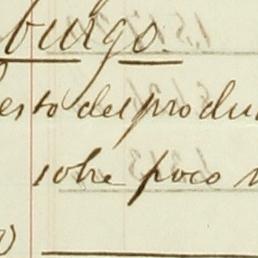 burgo.
esto del produ
sobre poco